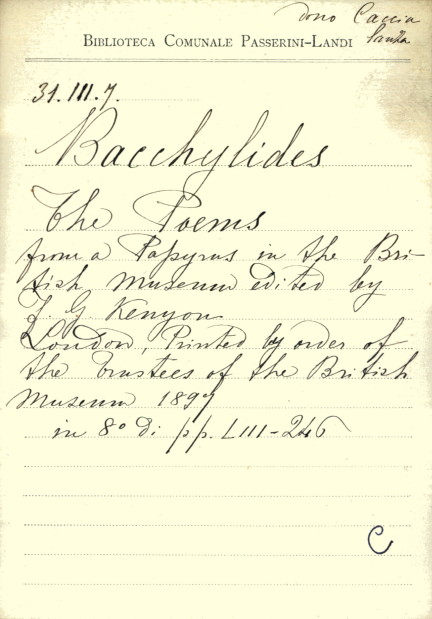 dono Caccia
BIBLIOTECA COMUNALE PASSERINI-LANDI
31.III.7.
Bacchylides
The Poems
from a Papyrus in the Bri-
tish Museum edited by
F. G. Kenyon
London, Printed by order of
the Trustees of the British
Museum 1897
in 8° di pp. LIII-246
C